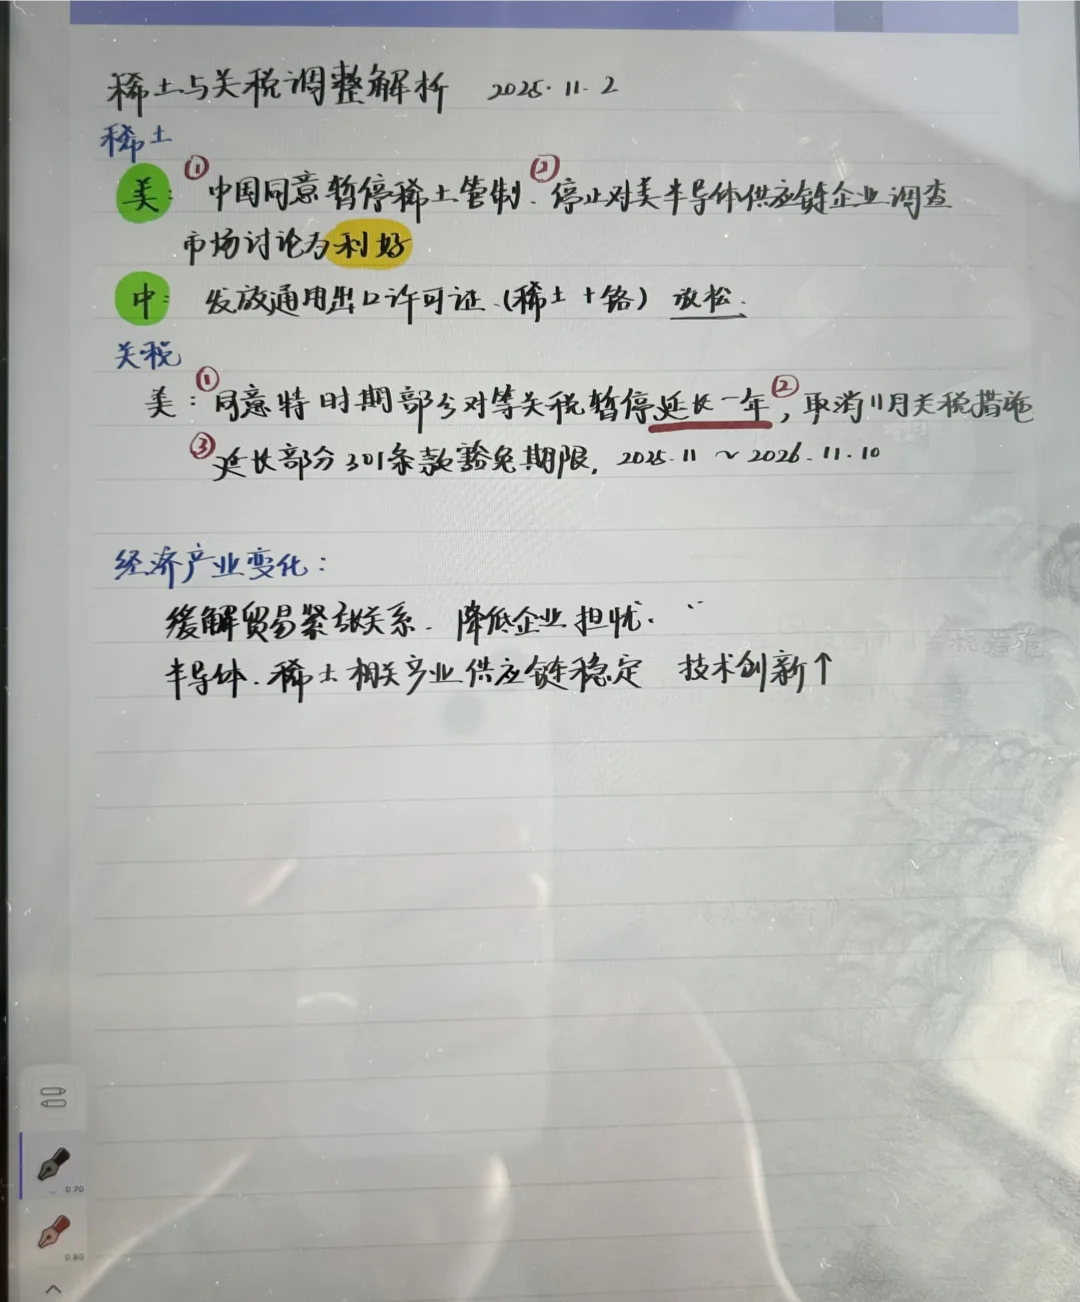 稀土与关税调整解析 2025.11.2
稀土
美: ①中国同意暂停稀土管制. ②停止对美半导体供应链企业调查
市场讨论为利好
中: 发放通用出口许可证.(稀土+铬) 放松.
关税
美: ①同意特时期部分对等关税暂停延长一年②, 取消11月关税措施
③延长部分301条款豁免期限, 2025.11 ~ 2026.11.10
经济产业变化:
缓解贸易紧张关系. 降低企业担忧.
半导体.稀土相关产业供应链稳定 技术创新↑
0.70
0.80